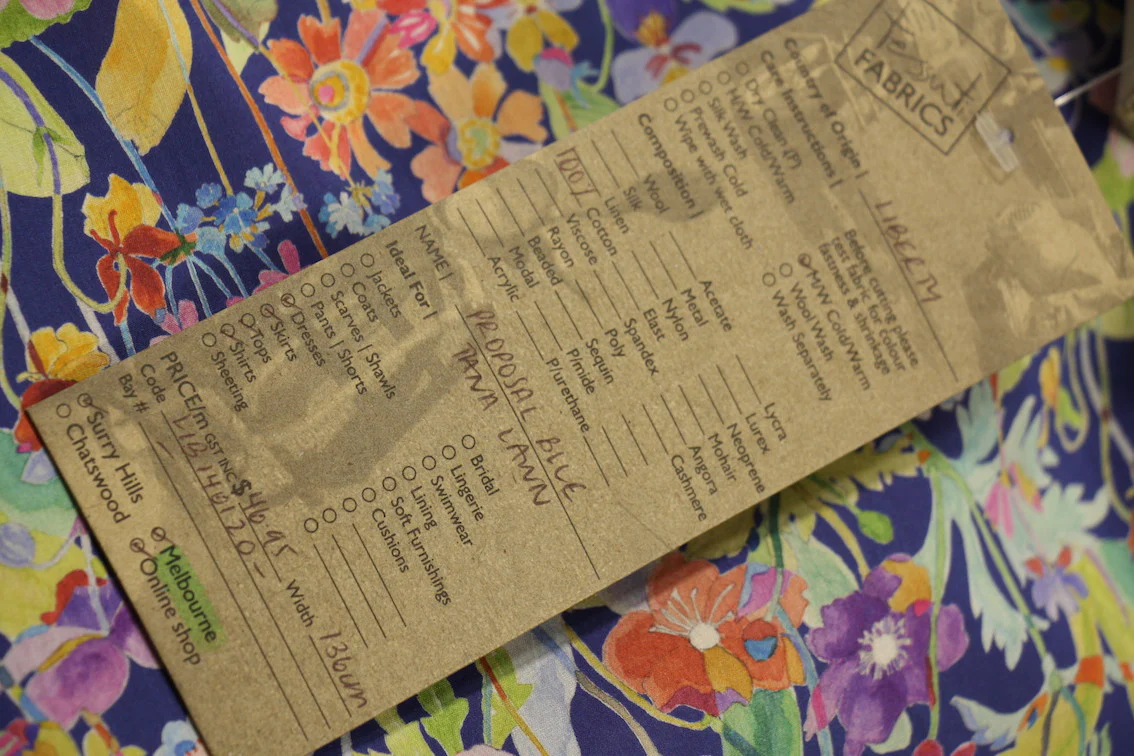 Tessuti
FABRICS
Country of Origin | LIBERTY
Care Instructions |
Before cutting please
test fabric for colour
fastness & shrinkage
Dry Clean (P)
H/W Cold/Warm
Silk Wash
Prewash Cold
Wipe with wet cloth
M/W Cold/Warm
Wool Wash
Wash Separately
Composition |
Wool
Silk
Linen
100% Cotton
Viscose
Rayon
Beaded
Modal
Acrylic
Acetate
Metal
Nylon
Elast
Spandex
Poly
Sequin
P/mide
P/urethane
Lycra
Lurex
Neoprene
Mohair
Angora
Cashmere
NAME | PROPOSAL BLUE
TANA LAWN
Ideal For |
Jackets
Coats
Scarves | Shawls
Pants | Shorts
Dresses
Skirts
Tops
Shirts
Sheeting
Bridal
Lingerie
Swimwear
Lining
Soft Furnishings
Cushions
PRICE/m GST INC $46.95 Width 136cm
Code LIB140120-
Bay # -
Surry Hills
Chatswood
Melbourne
Online shop